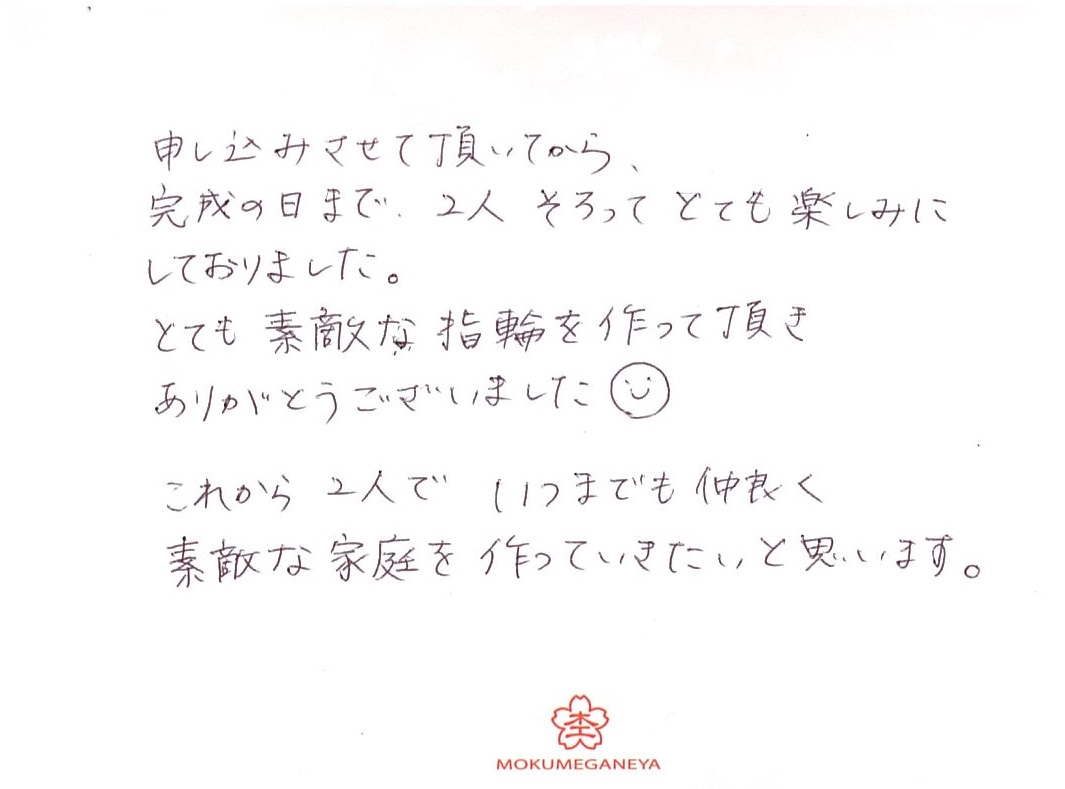 申し込みさせて頂いてから、
完成の日まで、2人 そろって とても 楽しみに
しておりました。
とても 素敵な 指輪を作って頂き
ありがとうございました
これから 2人で いつまでも 仲良く
素敵な家庭を作っていきたいと思います。
MOKUMEGANEYA